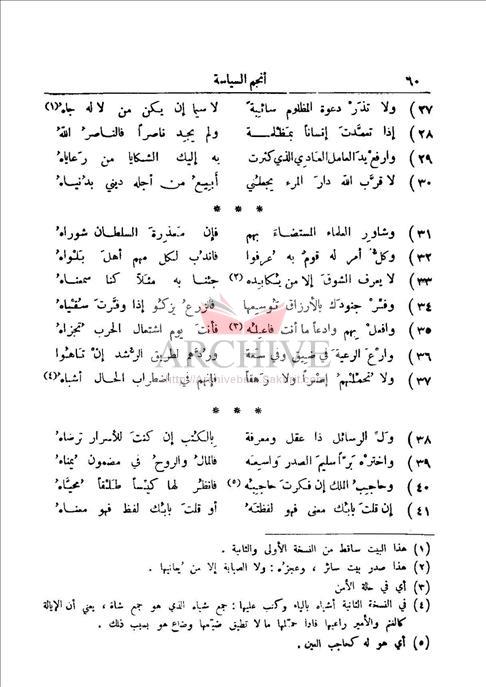 ٦٠ أنجم السياسة
٢٧) ولا تذرْ دعوة المظلوم سائبةً لا سيما إن يكن من لا له جاهُ (١)
٢٨) إذا تعمَّدتَ إنساناً بمَظلمة ولم يجد ناصراً فالناصرُ اللهُ
٢٩) وارفع يدَ العامل العادي الذي كثرت به إليك الشكايا من رعاياهُ
٣٠) لا قرَّب الله دارَ المرء يجعلني أبيعُ من أجله ديني بدُنياهُ
* * *
٣١) وشاوِر العلماء المستضاءَ بهم فإن مَعذِرةَ السلطان شوراهُ
٣٢) وكلُّ أمر له قومٌ به عُرفوا فاندُب لكل مهم أهلَ بَلواهُ
٣٣) لا يعرف الشوقَ إلا من يُكابده (٢) جئنا به مثلاً كنا سمعناهُ
٣٤) وفِّرْ جنودك بالأرزاق تُوسِعها فالزرعُ يزكو إذا وفَّرتَ سُقياهُ
٣٥) وافعل بهم وادعاً ما أنت فاعلُه (٣) فأنت يوم اشتعال الحرب تُجزاهُ
٣٦) وارْعَ الرعية في ضيق وفي سعة ورُدَّهم لطريق الرُّشد إنْ تاهُوا
٣٧) ولا تُحمِّلْهمُ إصْراً ولا رَهَقاً فإنهم في اضطراب الحال أشباهُ (٤)
* * *
٣٨) وولِّ الرسائل ذا عقل ومعرفة بالكتْبِ إن كنتَ للأسرار ترضاهُ
٣٩) واخترْه بَرّاً سليمَ الصدر واسِعَه فالمالُ والروحُ في مضمون يُمناهُ
٤٠) وحاجبُ الملك إن فكرت حاجبُه (٥) فانظُر لها كيِّساً طَلْقاً مُحيّاهُ
٤١) إن قلتَ بابُك معنى فهو لفظتُه أو قلتَ بابُك لفظ فهو معناهُ
(١) هذا البيت ساقط من النسخة الأولى والثانية .
(٢) هذا صدر بيت سائر ، وعجزُه : ولا الصبابة إلا من يُعانيها .
(٣) أي في حالة الأمن
(٤) في النسخة الثانية أشياه بالياء وكتب عليها : جمع شياه الذي هو جمع شاة ، يعني أن الإيالة
كالغنم والأمير راعيها فاذا حمَّلها ما لا تطيق ضيَّعها وضاع هو بسبب ذلك .
(٥) أي هو له كحاجب العين .
ARCHIVE
http://Archivebeta.Sakhrit.com